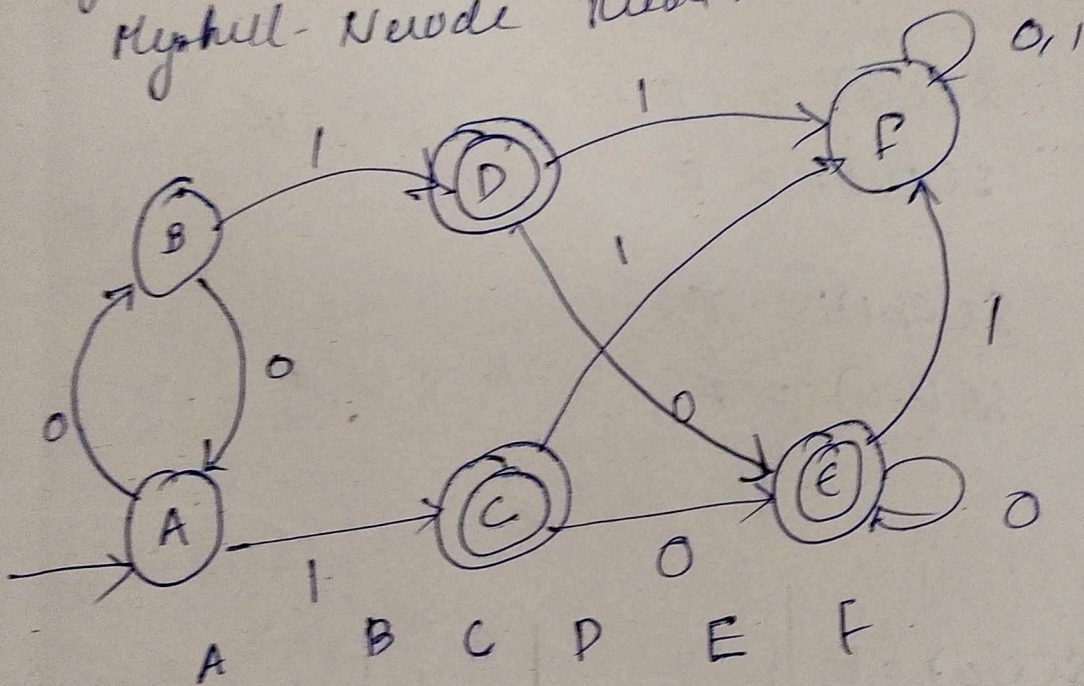 Myhill-Nerode
0, 1
1
1
F
D
B
1
0
1
0
0
E
C
A
0
1
0
A B C D E F